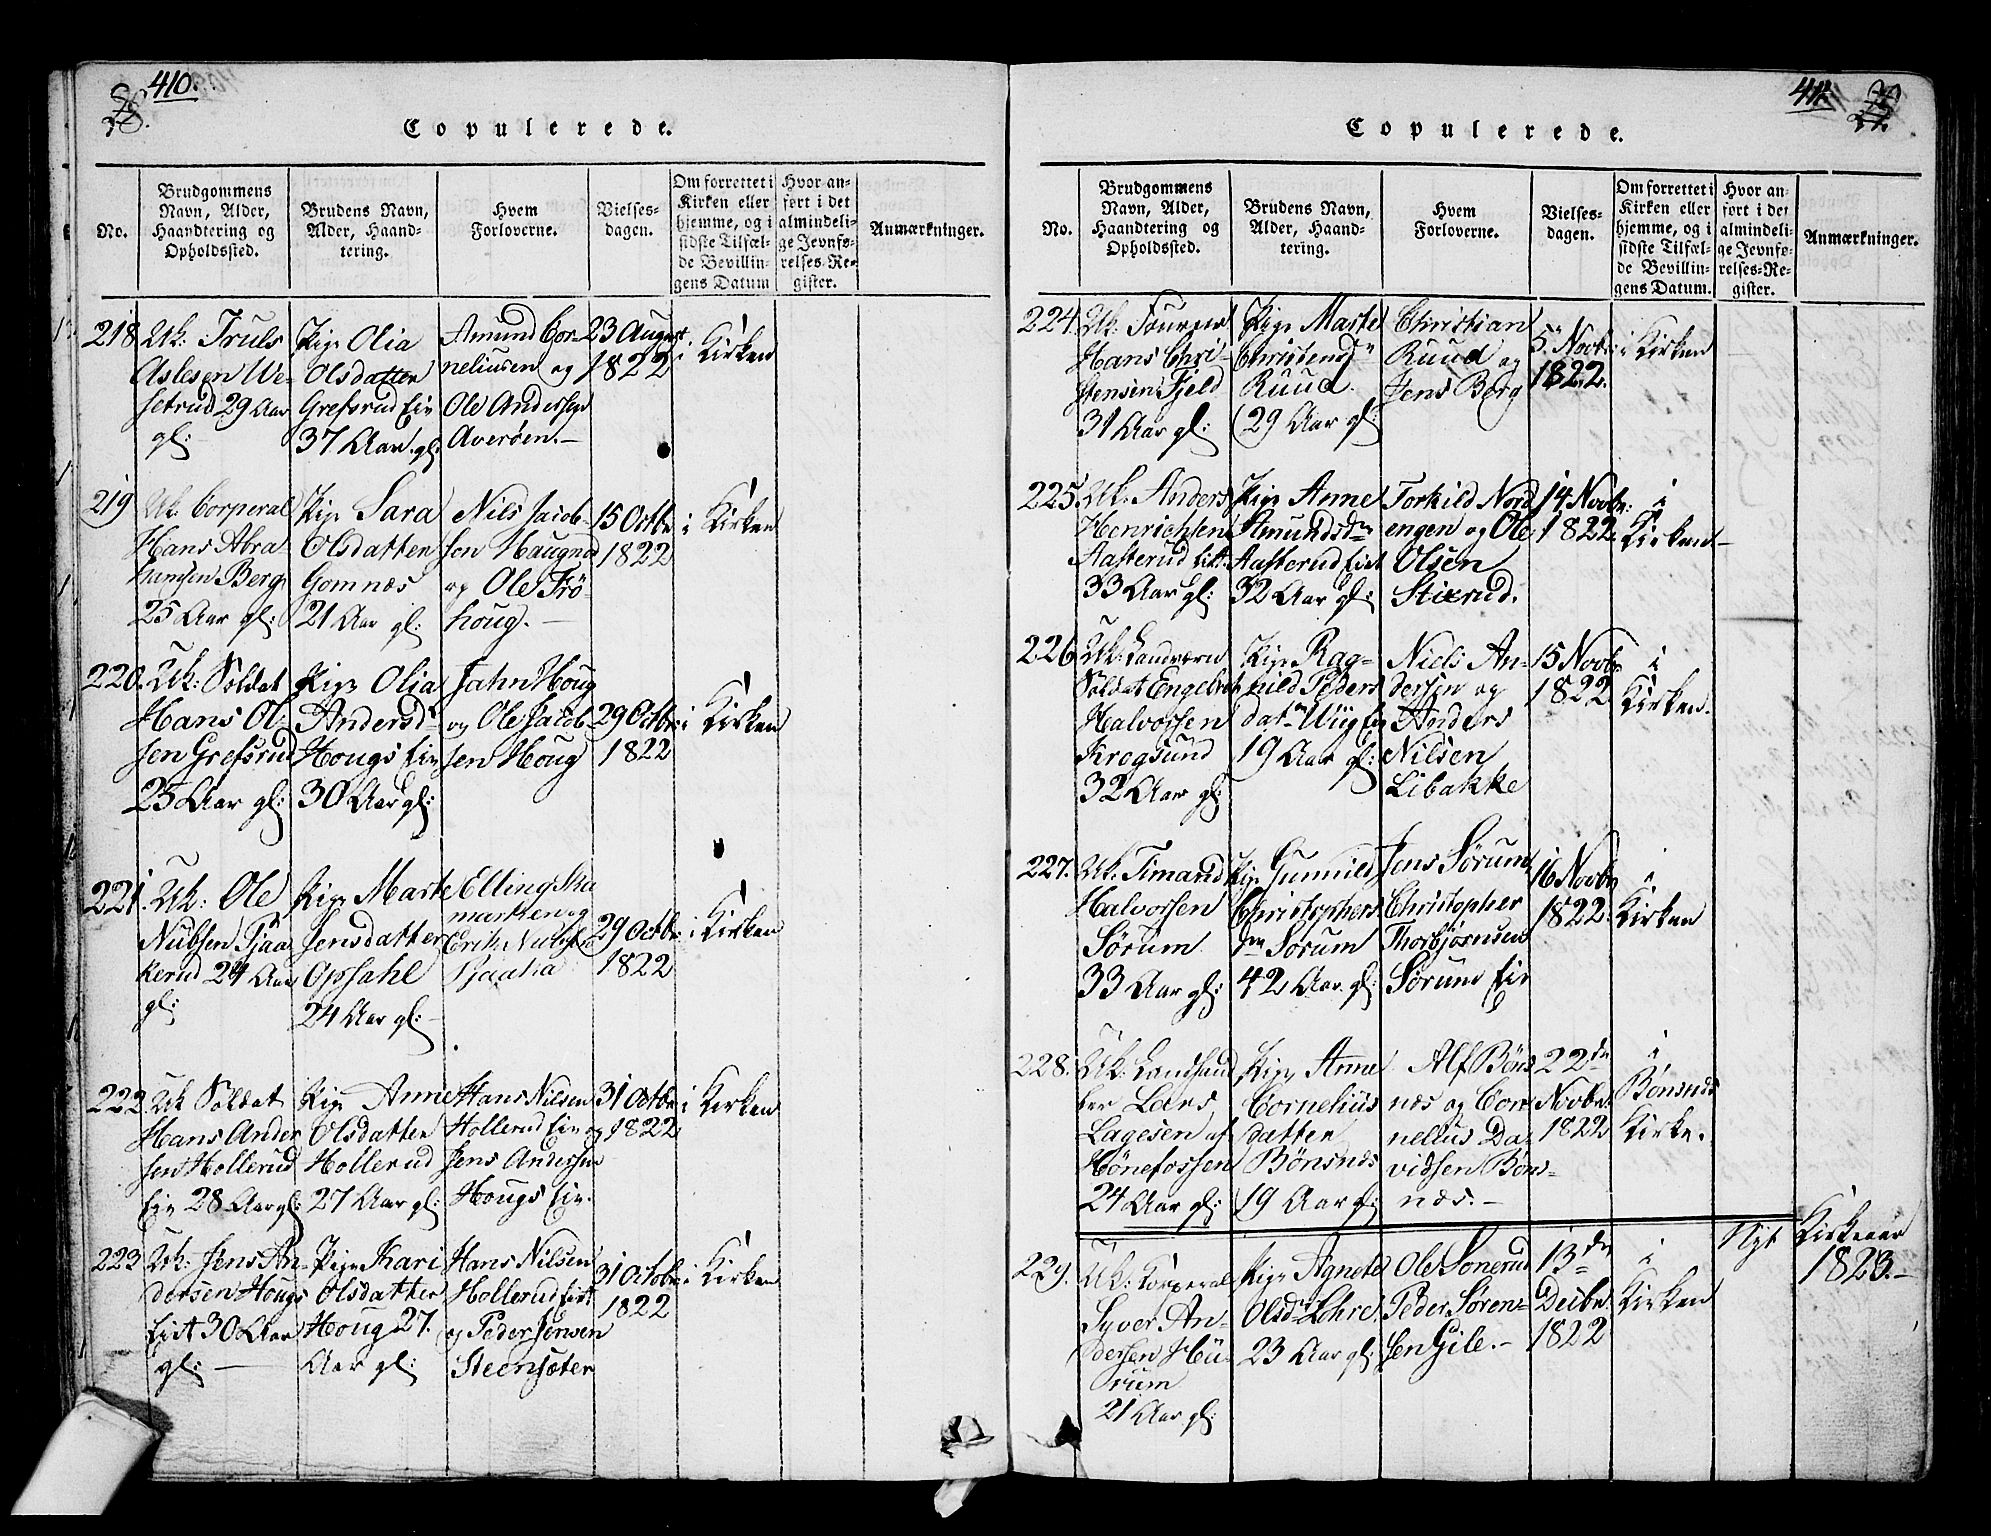 410.
28.
Copulerede.
No.
Brudgommens
Navn, Alder,
Haandtering og
Opholdssted.
Brudens Navn,
Alder, Haand-
tering.
Hvem
Forloverne.
Vielses-
dagen.
Om forrettet i
Kirken eller
hjemme, og i
sidste Tilfæl-
de Bevillin-
gens Datum
Hvor an-
ført i det
almindeli-
ge Jevnfø-
relses-Re-
gister.
Anmærkninger.
218
Uk: Truls
Aslesen We-
setrud 29 Aar
gl:
Pige Olia
Olsdatter
Grefsrud Eie
37 Aar gl:
Amund Cor-
neliusen og
Ole Andersen
Averöen.
23 August
1822
i Kirken
219
Uk. Corperal
Hans Abra-
hamsen Berg
25 Aar gl:
Pige Sara
Olsdatter
Gomnæs
21 Aar gl:
Nils Jacob-
sen Haugnæ
og Ole Frö-
houg.
15 Octbr
1822
i Kirken
220.
Uk: Soldat
Hans Ol-
sen Grefsrud
25 Aar gl:
Pige Olia
Andersd
Hougs Eie
30 Aar gl:
Jahn Houg
og Ole Jacob-
sen Houg
29 Octbr
1822
i Kirken
221.
Uk: Ole
Nubsen Tjaa
kerud 24 Aar
gl:
Pige Marte
Jensdatter
Opsahl
24 Aar gl:
Elling Ska
marken og
Erik
29 Octbr
1822
i Kirken
222
Uk Soldat
Hans Ander
sen Hollerud
Eie 28 Aar gl:
Pige Anne
Olsdatter
Hollerud
27 Aar gl:
Hans Nilsen
Hollerud Eie og
Jens Andersen
Hougs Eie.
31 Octbr
1822
i Kirken
223
Uk: Jens An-
dersen Hougs
Eiet 30 Aar
gl:
Pige Kari
Olsdatter
Houg 27.
Aar gl:
Hans Nilsen
Hollerud Eiet
og Peder Jensen
Steensæter
31 Octobr
1822
i Kirken
411.
Copulerede.
No.
Brudgommens
Navn, Alder,
Haandtering og
Opholdssted.
Brudens Navn,
Alder, Haand-
tering.
Hvem
Forloverne.
Vielses-
dagen.
Om forrettet i
Kirken eller
hjemme, og i
sidste Tilfæl-
de Bevillin-
gens Datum.
Hvor an-
ført i det
almindeli-
ge Jevnfø-
relses-Re-
gister.
Anmærkninger.
224.
Uk: Fourer
Hans Chri-
stensen Fjeld
31 Aar gl:
Pige Marte
Christensd
Ruud
29 Aar gl:
Christian
Ruud og
Jens Berg
5. Novbr
1822.
i Kirken
225.
Uk. Anders
Henrichsen
Aasterud Eiet
33 Aar gl:
Pige Anne
Amundsdr
Aasterud Eiet
32 Aar gl:
Torkild Nord
engen og Ole
Olsen
Stixrud.
14 Novbr:
1822
i
Kirken
226
Uk: Landværn
Soldat Engelbret
Halvorsen
Krogsund
32 Aar gl:
Pige Rag-
nild Peders
dat Wiig Eie
19 Aar gl:
Niels An-
dersen og
Anders
Nilsen
Libakke
15 Novbr
1822
i
Kirken.
227.
Uk. Timand
Halvorsen
Sörum
33 Aar gl:
Pige Gunnild
Christophers
dr Sörum
42 Aar gl:
Jens Sörum
Christopher
Thorbjörnsen
Sörum Eie
16 Novbr
1822.
i
Kirken
228.
Uk: Landhand
ler Lars
Lagesen af
Hönefossen
24 Aar gl:
Pige Anne
Cornelius
datter
Bönsnæs
19 Aar gl:
Alf Böns
næs og Cor-
nelius Da-
vidsen Böns-
næs.
22de
Novbr.
1822
i
Bönsnæs
Kirke.
Nyt Kirkeaar
1823.
229.
Uk: Korperal
Syver An-
dersen Hu-
rum
21 Aar gl:
Pige Agnete
Olsdr Lohre
23 Aar gl:
Ole Sonerud
Peder Sören-
sen Gile.
13de
Decbr
1822
i
Kirken